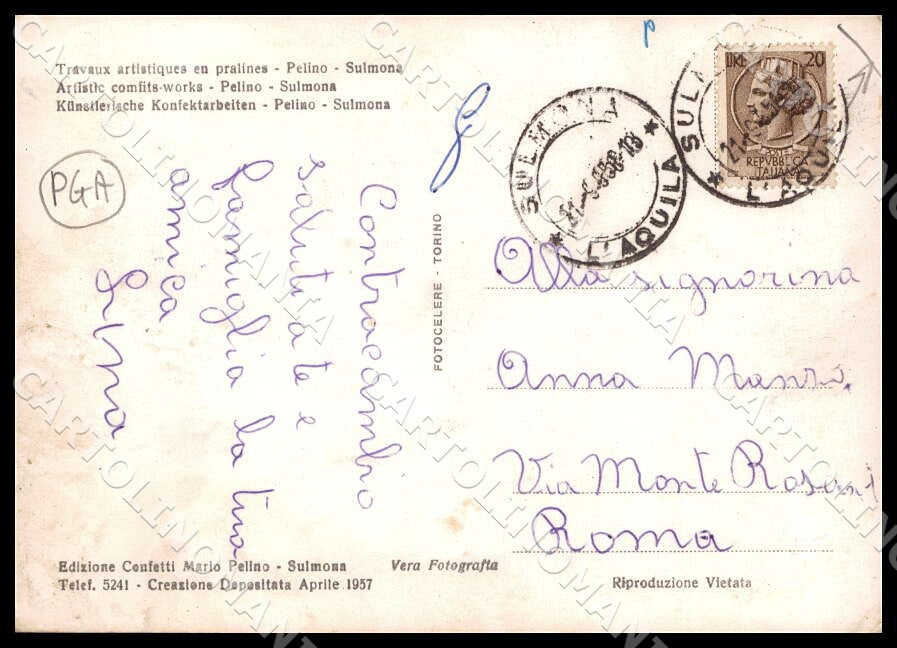 Travaux artistiques en pralines - Pelino - Sulmona
Artistic comfits-works - Pelino - Sulmona
Künstlerische Konfektarbeiten - Pelino - Sulmona
PGA
Contracambio
saluti a te e
famiglia la tua
amica
FOTOCELERE - TORINO
SULMONA
L'AQUILA
LIRE 20
REPVBBLICA
ITALIANA
L'AQUILA
Alla signorina
Anna
Via Monte
Roma
Edizione Confetti Mario Pelino - Sulmona
Telef. 5241 - Creazione Depositata Aprile 1957
Vera Fotografia
Riproduzione Vietata
CARTOLINOMANIA